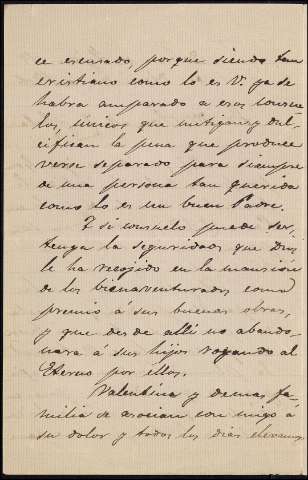 ce escusado, porque siendo tan
cristiano como lo es V. ya se
habra amparado a esos consue
los, únicos que mitigan y dul
cifican la pena que produce
verse separado para siempre
de una persona tan querida
como lo es un buen Padre.
Y si consuelo puede ser,
tenga la seguridad que Dios
le ha recojido en la mansión
de los bienaventurados como
premio á sus buenas obras,
y que desde allí no abando-
nara á sus hijos rogando al
Eterno por ellos.
Valentina y demas fa-
milia se asocian con migo a
su dolor y todos los dias elevamos